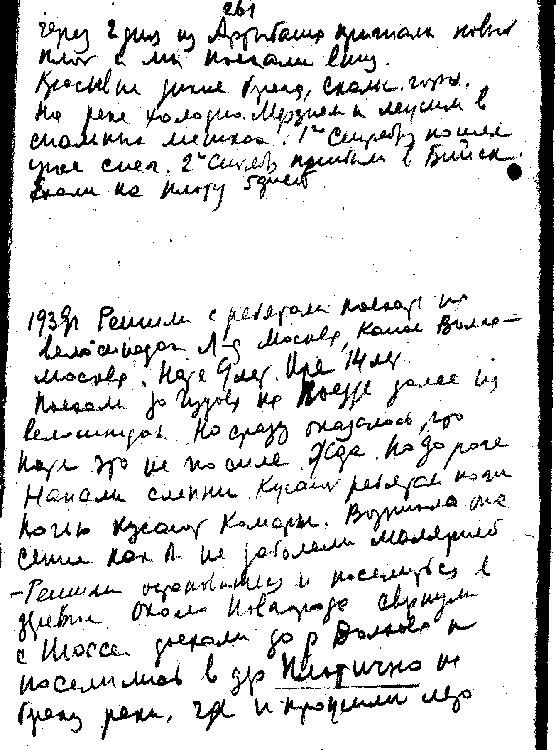 261
через 2 дня из Артыбаша пригнали новый
плот и мы поехали вниз.
Красивые дикие берега, скалы, горы.
На реке холодно. Мерзнем и
спальных мешках. 1го Сентября пошел
снег. 2го Сентября прибыли в Бийск.
Ехали на плоту 5 дней.
1939г Решили с ребятами поехать на
велосипедах Л-д Москва, Канал Волга–
Москва. Наде 9 лет. Ире 14 лет.
Поехали до Чудова на Поезде далее на
велосипедах. Но сразу оказалось, что
Наде это не по силе. Жара. По дороге
Напали слепни. Кусают ребятам ноги
Ночью кусают комары. Возникла опа
сение как б не заболели малярией
– Решили остановиться и поселиться в
деревне. Около Новгорода свернули
с шоссе доехали до р Волхова и
поселились в др Плотично на
берегу реки, где и прожили лето